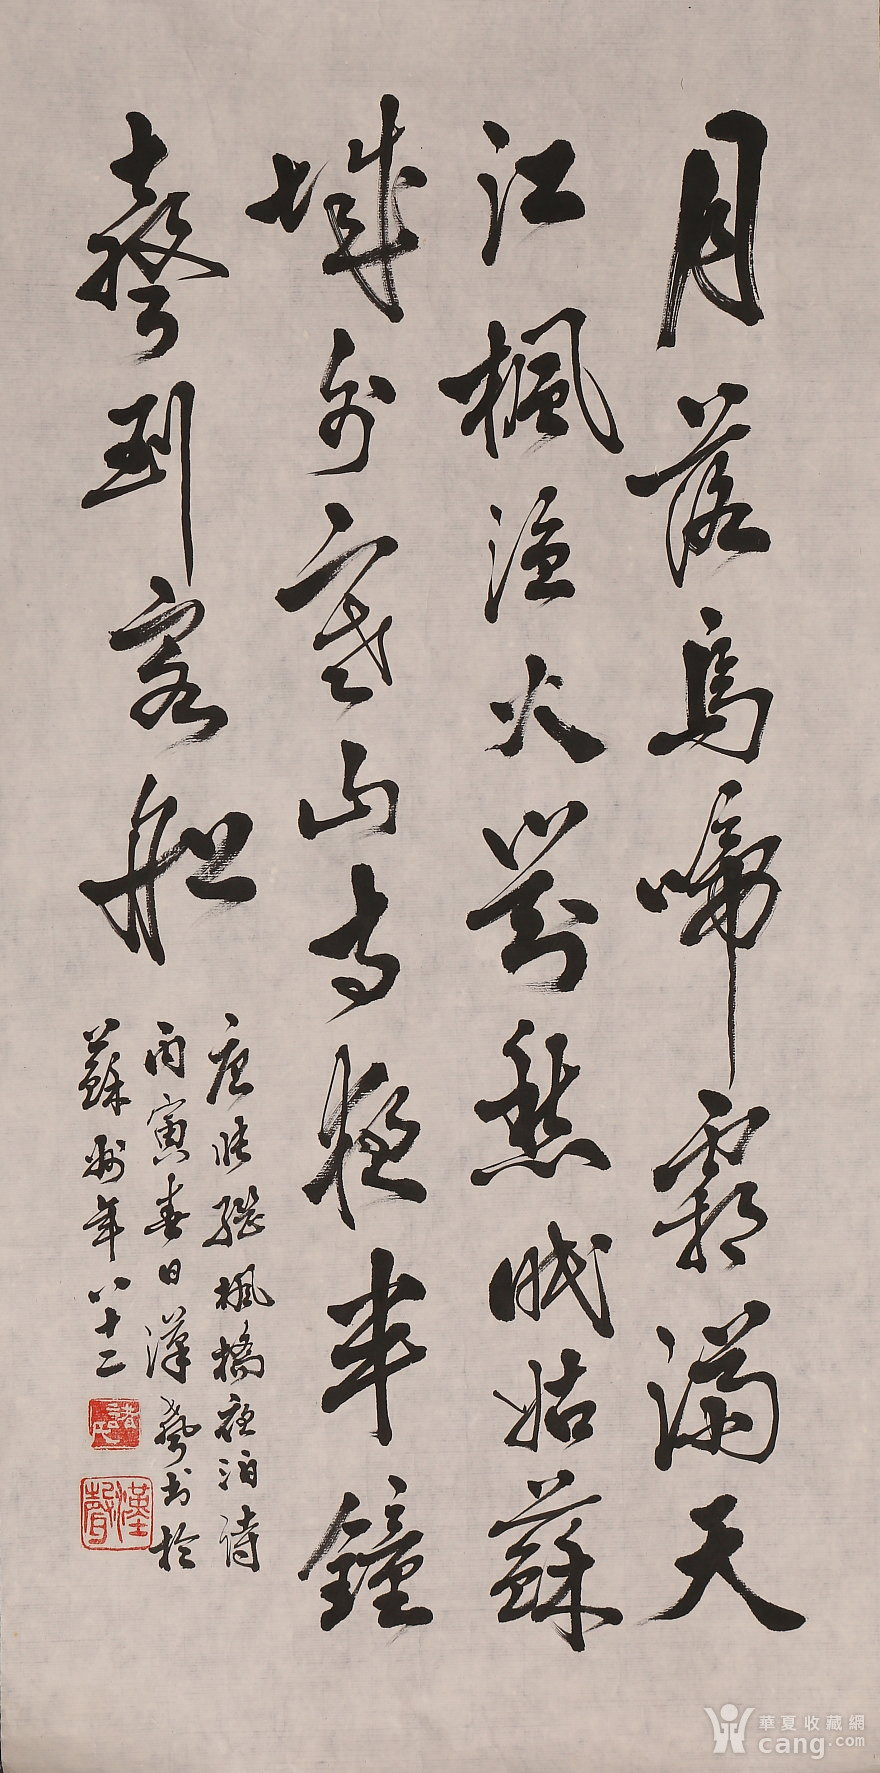 月落烏啼霜滿天
江楓漁火對愁眠姑蘇
城外寒山寺夜半鐘
聲到客船
唐張繼楓橋夜泊詩
丙寅春日漢聲書於
蘇州年八十二
漢聲
華夏收藏網
cang.com